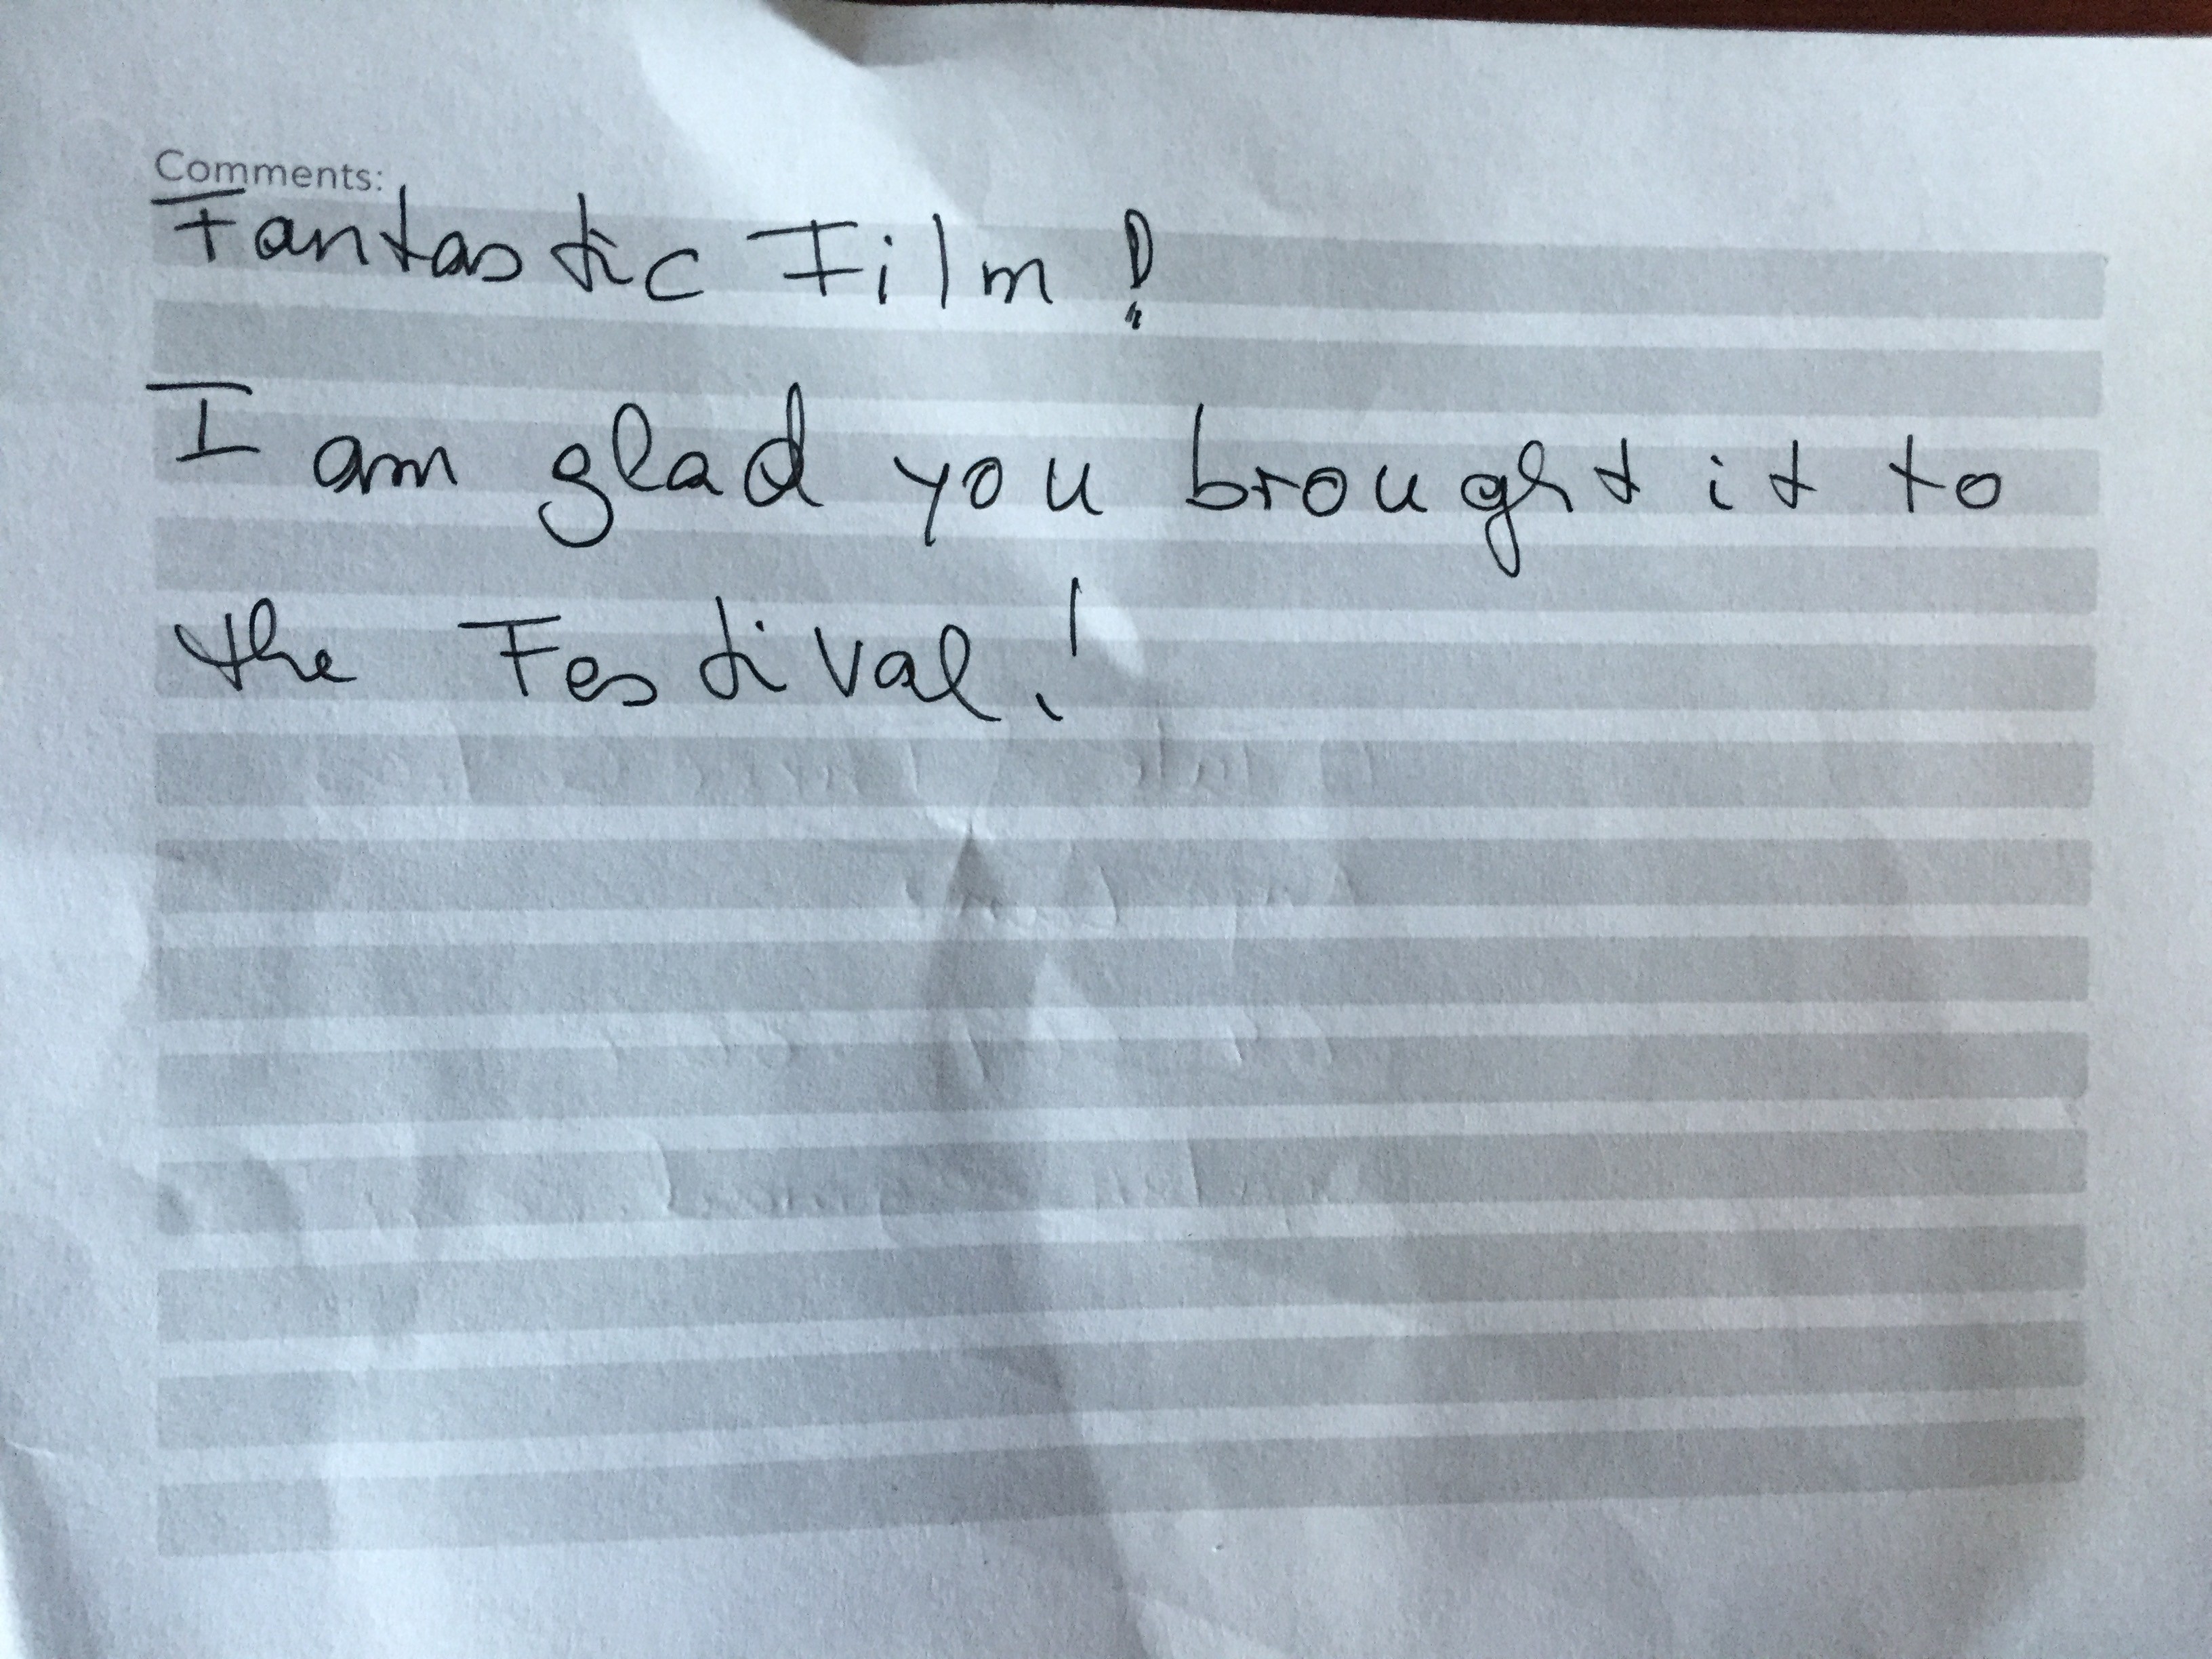 Comments:
Fantastic Film!
I am glad you brought it to
the Festival!